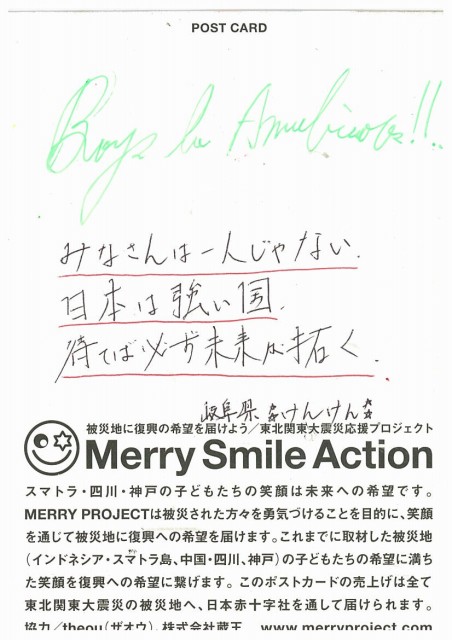 POST CARD
Boys be Ambicobs!!
みなさんは一人じゃない.
日本は強い国.
待てば必ず未来が拓く.
岐阜県 ☆けんけん☆
被災地に復興の希望を届けよう/東北関東大震災応援プロジェクト
Merry Smile Action
スマトラ・四川・神戸の子どもたちの笑顔は未来への希望です。
MERRY PROJECTは被災された方々を勇気づけることを目的に、笑顔
を通じて被災地に復興への希望を届けます。これまでに取材した被災地
(インドネシア・スマトラ島、中国・四川、神戸)の子どもたちの希望に満ち
た笑顔を復興への希望に繋げます。このポストカードの売上げは全て
東北関東大震災の被災地へ、日本赤十字社を通して届けられます。
協力/theou(ザオウ)、株式会社蔵王 www.merryproject.com